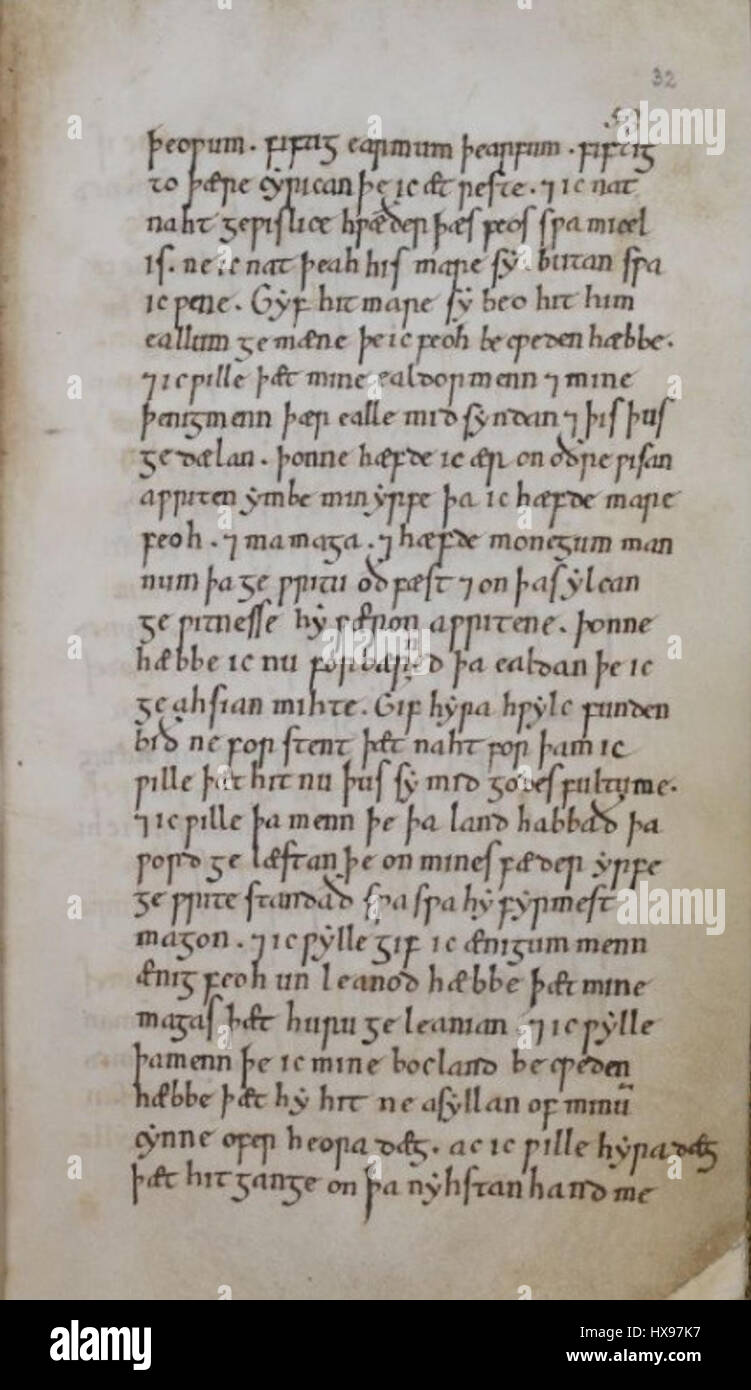 32
þeoƿum . fiftig earmum þearfum . fiftig
to þære cẏrican þe ic æt reste . ⁊ ic nat
naht geƿislice hƿæðer þæs feos sƿa micel
is . ne ic nat þeah his mare sẏ . butan sƿa
ic ƿene . Gẏf hit mare sẏ beo hit him
eallum ge mæne þe ic feoh be cƿeden hæbbe .
⁊ ic ƿille þæt mine ealdormenn ⁊ mine
þenigmenn þær ealle mid sẏndan ⁊ þis þus
ge dælan . þonne hæfde ic ær on oðre ƿisan
aƿriten ẏmbe min ẏrfe þa ic hæfde mare
feoh . ⁊ ma maga . ⁊ hæfde monegum man
num þa ge ƿritu oð fæst ⁊ on þas ẏlcan
ge ƿitnesse hẏ ƿæron aƿritene . þonne
hæbbe ic nu forbærned þa ealdan þe ic
geahsian mihte . Gif hẏra hƿẏlc funden
bið ne for stent þæt naht for þam ic
ƿille þæt hit nu þus sẏ mid godes fultume .
⁊ ic ƿille þa menn þe þa land habbað þa
ƿord ge læstan þe on mines fæder ẏrfe
ge ƿrite standað sƿa sƿa hẏ fẏrmest
magon . ⁊ ic ƿẏlle gif ic ænigum menn
ænig feoh un leanod hæbbe þæt mine
magas þæt huru ge leanian . ⁊ ic ƿẏlle
þa menn þe ic mine bocland be cƿeden
hæbbe þæt hẏ hit ne asẏllan of minū
cẏnne ofer heora dæg . ac ic ƿille hẏra dæg
þæt hit gange on þa nẏhstan hand me
alamy
Image ID: HX97K7
www.alamy.com